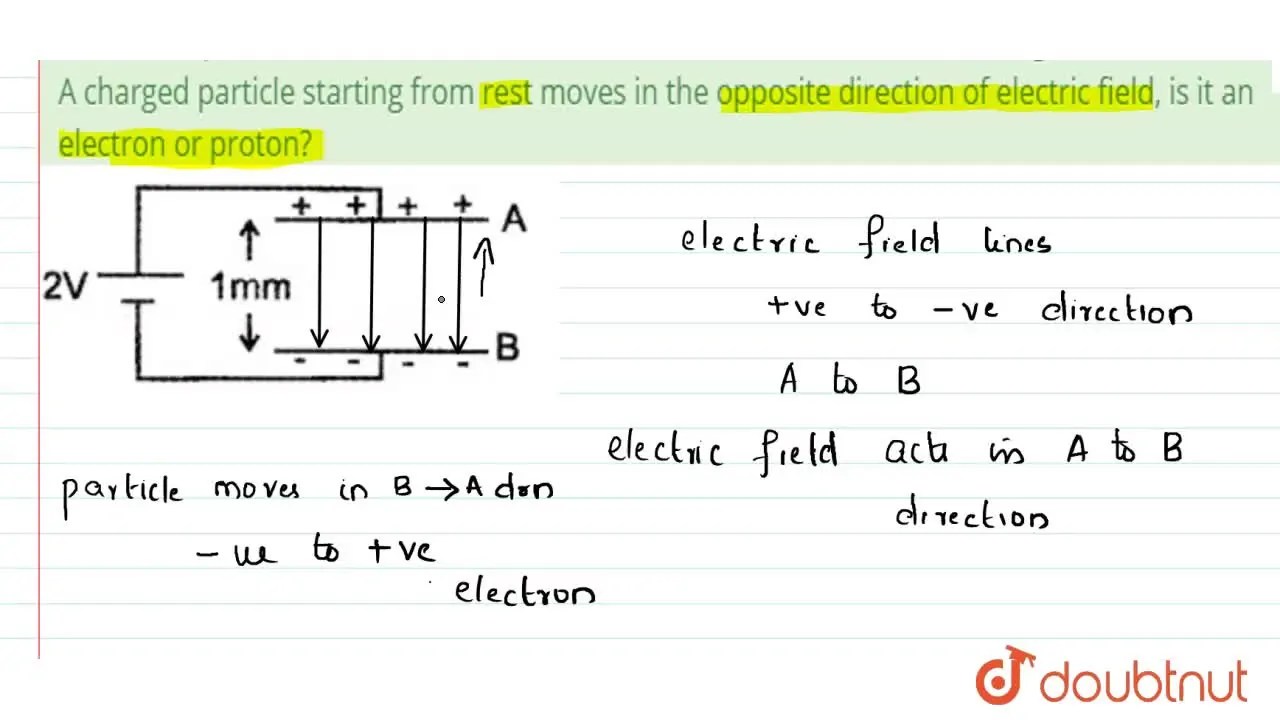 A charged particle starting from rest moves in the opposite direction of electric field, is it an
electron or proton?
+ + + + A
2V
1mm
- - - - B
electric field lines
+ve to -ve direction
A to B
electric field acts in A to B
direction
particle moves in B → A dirn
-ve to +ve
electron
doubtnut